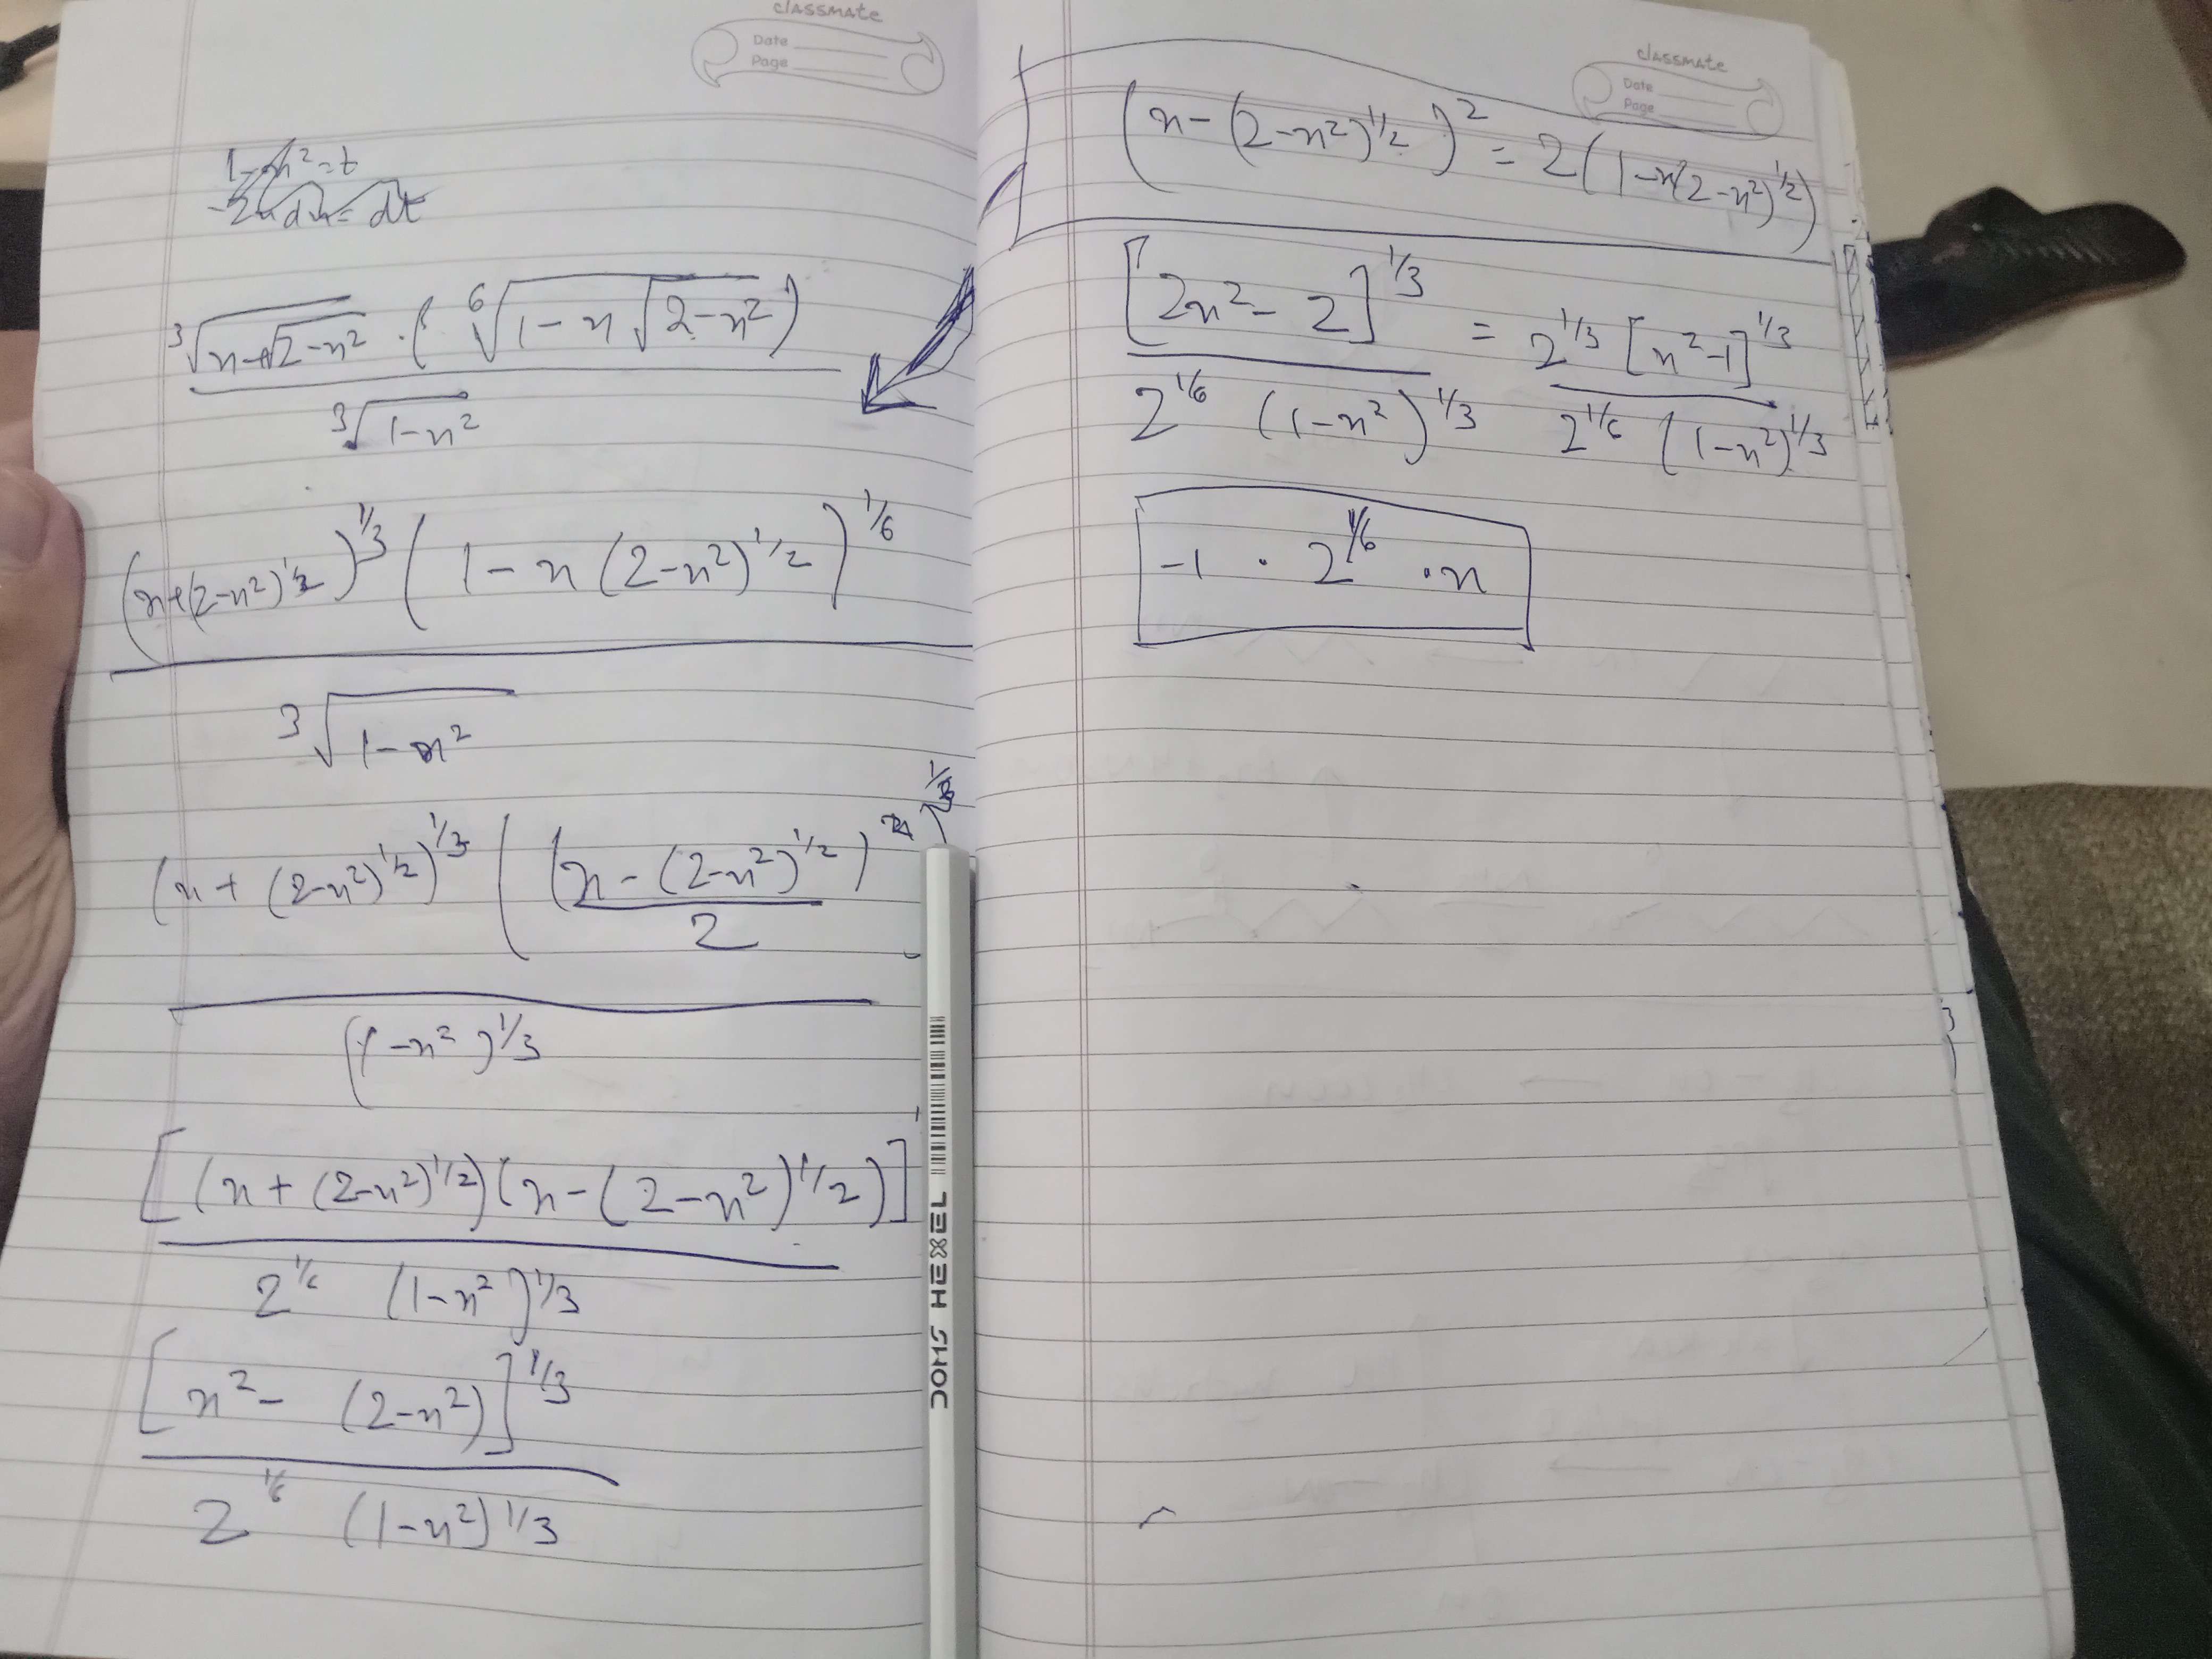 classmate
Date
Page
1-x²=t
-2x dx = dt
∛(x+√(2-x²)) · ( ⁶√(1-x√(2-x²)) )
∛(1-x²)
(x+(2-x²)^1/2)^1/3 (1-x(2-x²)^1/2)^1/6
∛(1-x²)
(x+(2-x²)^1/2)^1/3 ( (x-(2-x²)^1/2)
2
(1-x²)^1/3
[(x+(2-x²)^1/2)(x-(2-x²)^1/2)]
2^1/6 (1-x²)^1/3
[x²-(2-x²)]^1/3
2^1/6 (1-x²)^1/3
DOMS HEXEL
classmate
Date
Page
(x-(2-x²)^1/2)² = 2(1-x(2-x²)^1/2)
[2x²-2]^1/3 = 2^1/3 [x²-1]^1/3
2^1/6 (1-x²)^1/3 2^1/6 (1-x²)^1/3
-1 · 2^1/6 · x